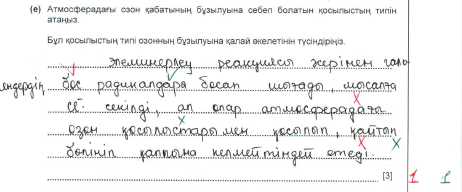 (e) Атмосферадағы озон қабатының бұзылуына себеп болатын қосылыстың типін
атаңыз.
Бұл қосылыстың типі озонның бұзылуына қалай әкелетінін түсіндіріңіз.
реакциясы әсерінен гало
гендердің бос радикалдары босап шығады, мысалға
Cl секілді, ал олар атмосферадағы
озон қосылыстарымен қосылып, қайтып
бөлініп қалпына келмейтіндей етеді.
[3] 1 1